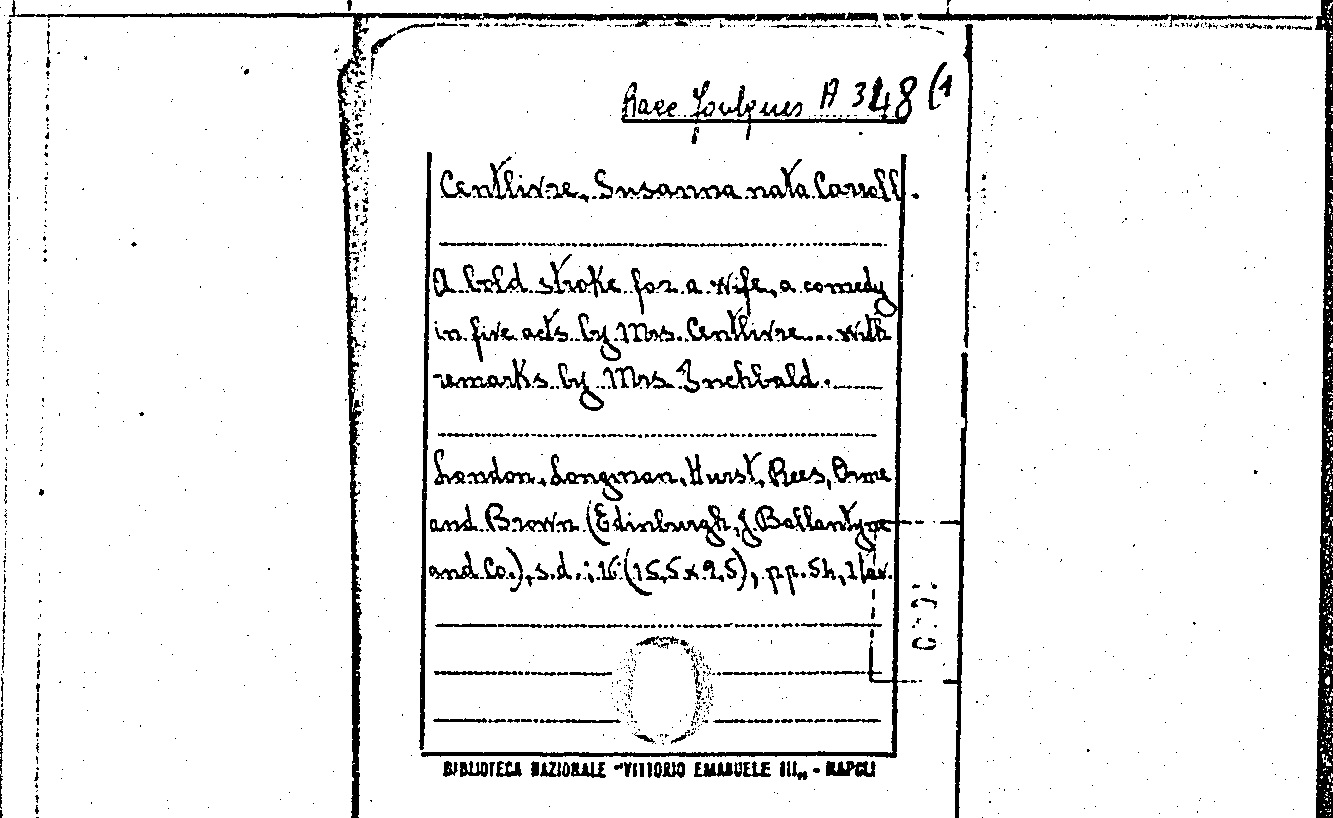 Racc. Foulques A 348 (1
Centlivre, Susanna nata Carroll.
A bold stroke for a wife, a comedy
in five acts by Mrs. Centlivre... with
remarks by Mrs Inchbald.
London, Longman, Hurst, Rees, Orme
and Brown (Edinburgh, J. Ballantyne
and Co.), s.d.; 16° (15,5 x 9,5), pp. 54, 1 tav.
BIBLIOTECA NAZIONALE "VITTORIO EMANUELE III„ - NAPOLI